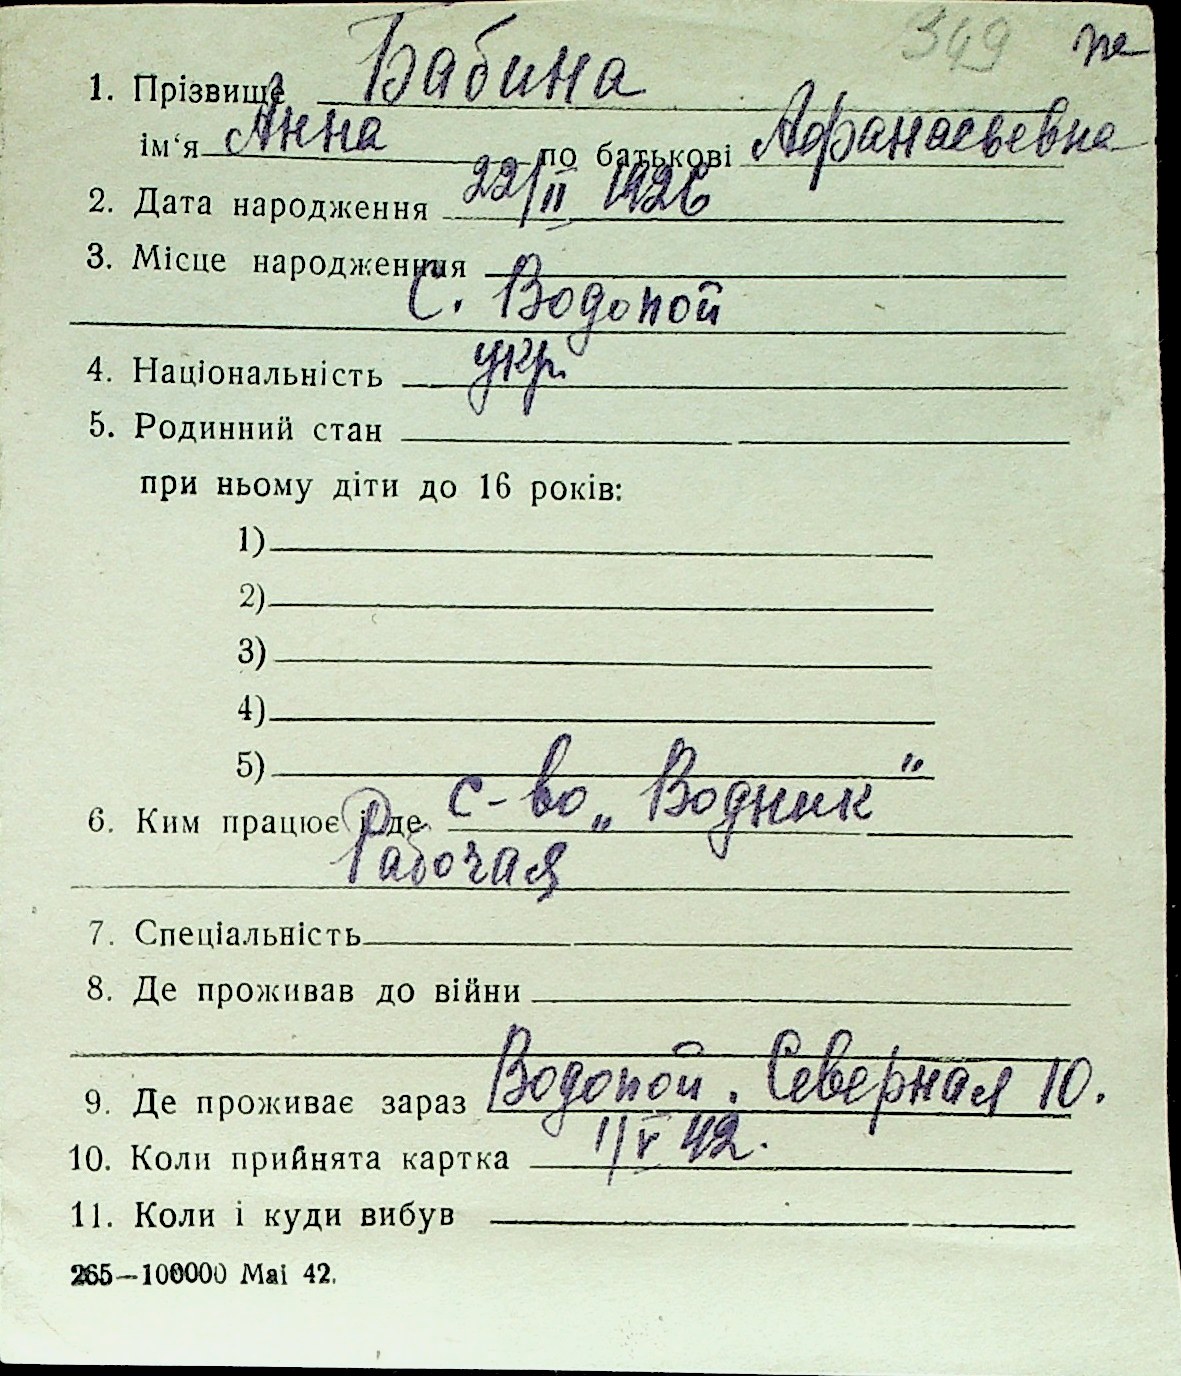 349
1. Прізвище Бабина
ім'я Анна по батькові Афанасьевна
2. Дата народження 22/II 1926
3. Місце народження
С. Водопой
4. Національність укр.
5. Родинний стан
при ньому діти до 16 років:
1)
2)
3)
4)
5)
6. Ким працює і де с-во „Водник"
Рабочая
7. Спеціальність
8. Де проживав до війни
9. Де проживає зараз Водопой. Северная 10.
10. Коли прийнята картка 1/V 42.
11. Коли і куди вибув
265—100000 Mai 42.